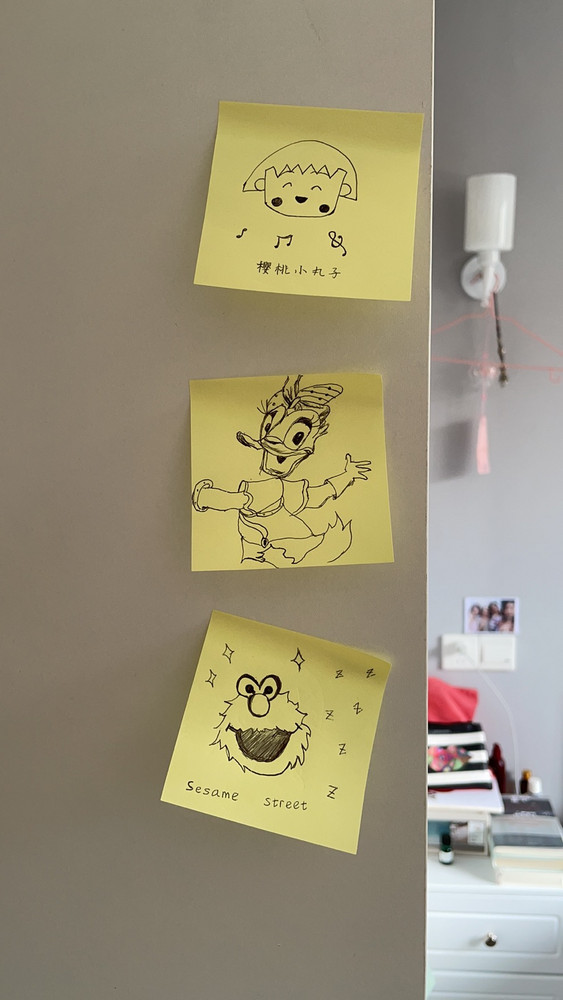 樱桃小丸子
z z
z z
z
z
Sesame street